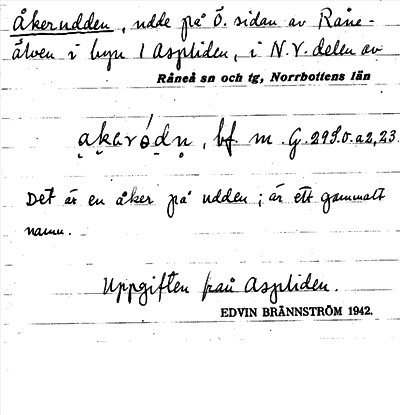 Åkerudden, udde på Ö. sidan av Råne-
älven i byn 1 Aspliden, i N.V. delen av
Råneå sn och tg, Norrbottens län
bf. m.
Det är en åker på udden; är ett gammalt
namn.
Uppgiften från Aspliden.
EDVIN BRÄNNSTRÖM 1942.